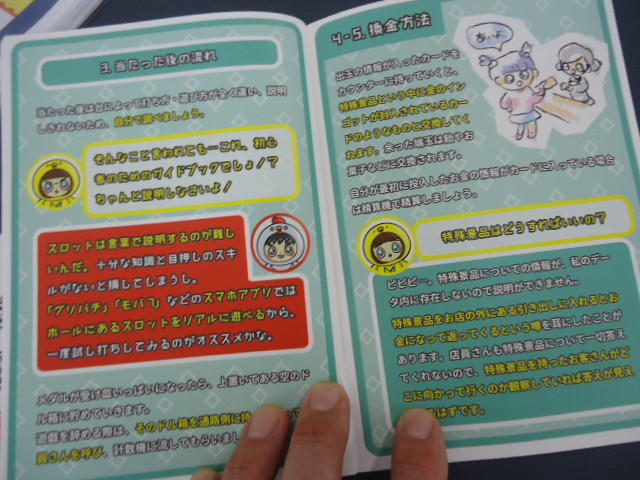 3.当たった後の流れ
当たった後は台によって打ち方・遊び方が全く違い、説明
しきれないため、自分で調べましょう。
そんなこと言われても…これ、初心
者のためのガイドブックでしょ!?
ちゃんと説明しなさいよ!
スロットは言葉で説明するのが難し
いんだ。十分な知識と目押しのスキ
ルがないと損してしまうし。
「グリパチ」「モバ7」などのスマホアプリでは
ホールにあるスロットをリアルに遊べるから、
一度試し打ちしてみるのがオススメかな。
メダルが受け皿いっぱいになったら、上置いてある空のド
ル箱に貯めていきます。
遊戯を辞める際は、そのドル箱を通路側に持
員さんを呼び、計数機に流してもらいまし
4-5.換金方法
出玉の情報が入ったカードを
カウンターに持っていくと、
特殊景品という中に金のイン
ゴットが封入されているカー
ドのようなものと交換してく
れます。余った端玉は飴やお
菓子などに交換されます。
自分が最初に投入したお金の情報がカードに入っている場合
は精算機で精算しましょう。
あいよ
特殊景品はどうすればいいの?
ピピピ…。特殊景品についての情報が、私のデー
タ内に存在しないので説明ができません。
特殊景品をお店の外にある引き出しに入れるとお
金になって返ってくるという噂を耳にしたことが
あります。店員さんも特殊景品について一切答え
てくれないので、特殊景品を持ったお客さんがど
こに向かって行くのか観察していれば答えが見え
るはずです。